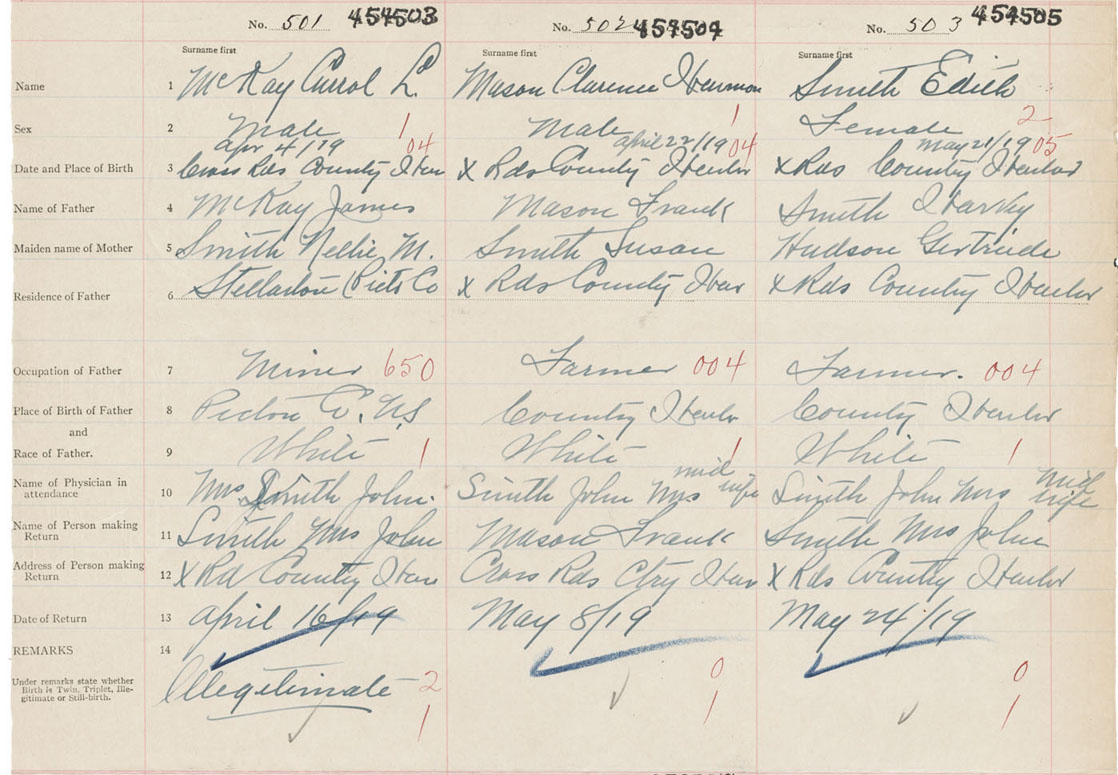 No. 501 454503 No. 502 454504 No. 503 454505
Surname first Surname first Surname first
Name 1 McKay Carrol L. Mason Clarence Harmon Smith Edith
Sex 2 Male 1 Male 1 Female 2
Apr 4/19 04 april 22/19 04 May 21/19 05
Date and Place of Birth 3 Cross Rds County Har X Rds County Harbor X Rds County Harbor
Name of Father 4 McKay James Mason Frank Smith Harvey
Maiden name of Mother 5 Smith Nellie M. Smith Susan Hudson Gertrude
Residence of Father 6 Stellarton Pict Co X Rds County Har X Rds County Harbor
Occupation of Father 7 Miner 650 Farmer 004 Farmer. 004
Place of Birth of Father 8 Pictou Co. NS Country Harbor Country Harbor
and
Race of Father. 9 White 1 White 1 White 1
Name of Physician in attendance 10 Mrs Smith John. Smith John Mrs mid wife Smith John Mrs mid wife
Name of Person making Return 11 Smith Mrs John Mason Frank Smith Mrs John
Address of Person making Return 12 X Rd Country Har Cross Rds Ctry Har X Rds Country Harbor
Date of Return 13 April 16/19 May 8/19 May 24/19
REMARKS 14
Under remarks state whether Birth is Twin, Triplet, Ille-
gitimate or Still-birth.
Illegitimate 2 0 0
1 1 1